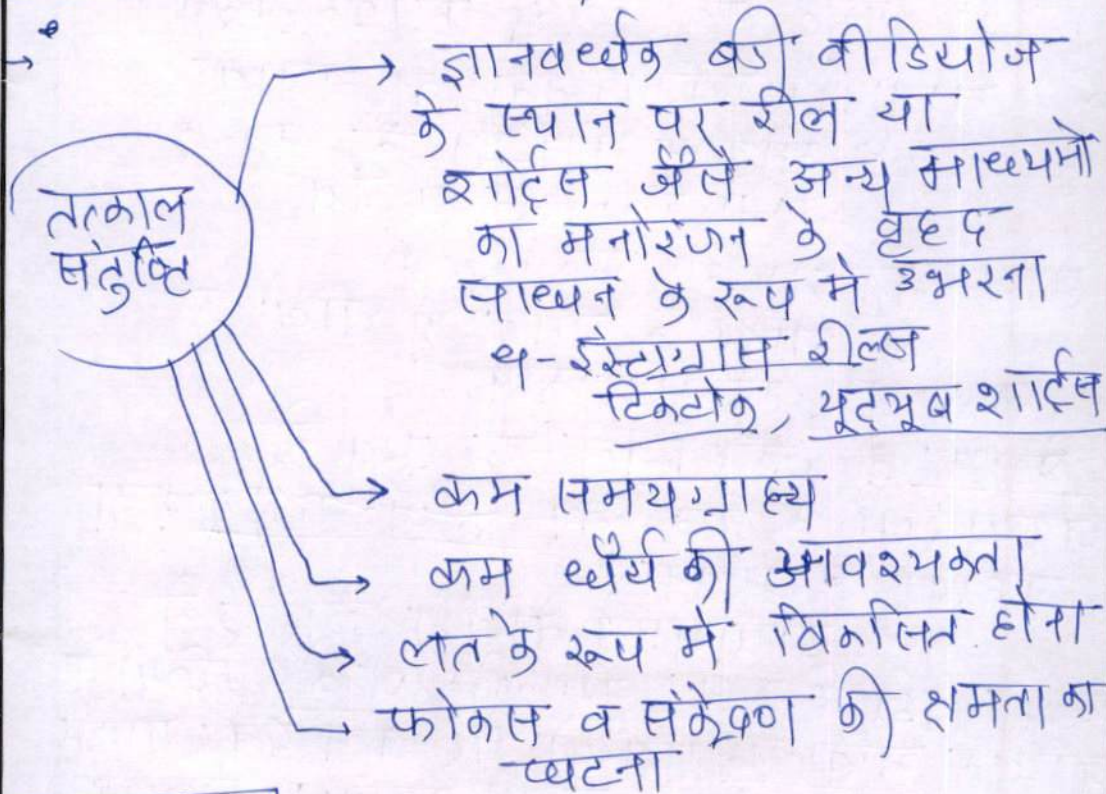 तत्काल
संतुष्टि
ज्ञानवर्ध्धक बडी वीडियोज
के स्थान पर रील या
शोर्ट्स जैसे अन्य माध्यमो
का मनोरंजन के वृहद
साधन के रूप मे उभरना
इंस्टाग्राम रील्ज
टिकटोक, यूट्यूब शार्ट्स
कम समयग्राह्य
कम धैर्य की आवश्यकता
लत के रूप मे विकसित होना
फोकस व की क्षमता का
घटना